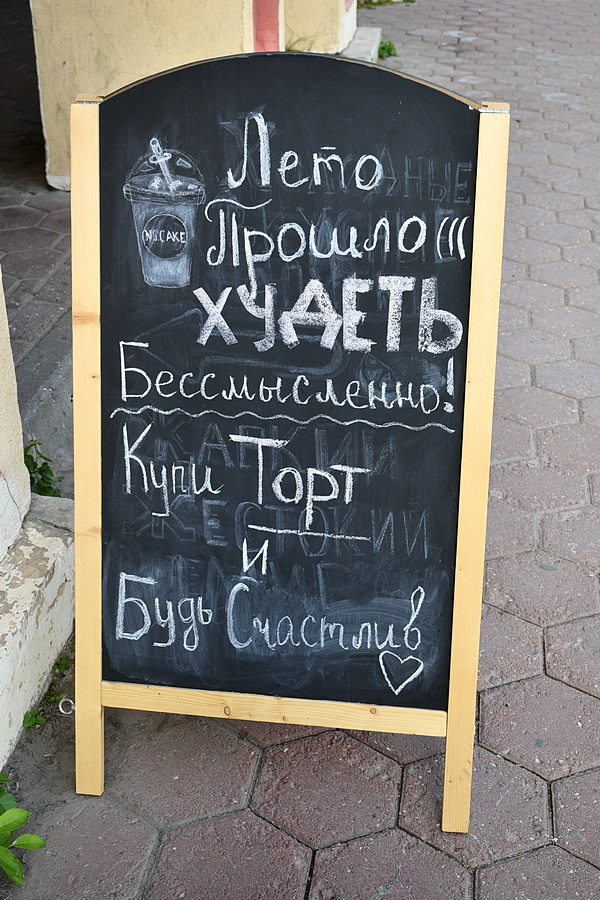 Лето
Прошло(((
ХУДЕТЬ
Бессмысленно!
Купи Торт
и
Будь Счастлив